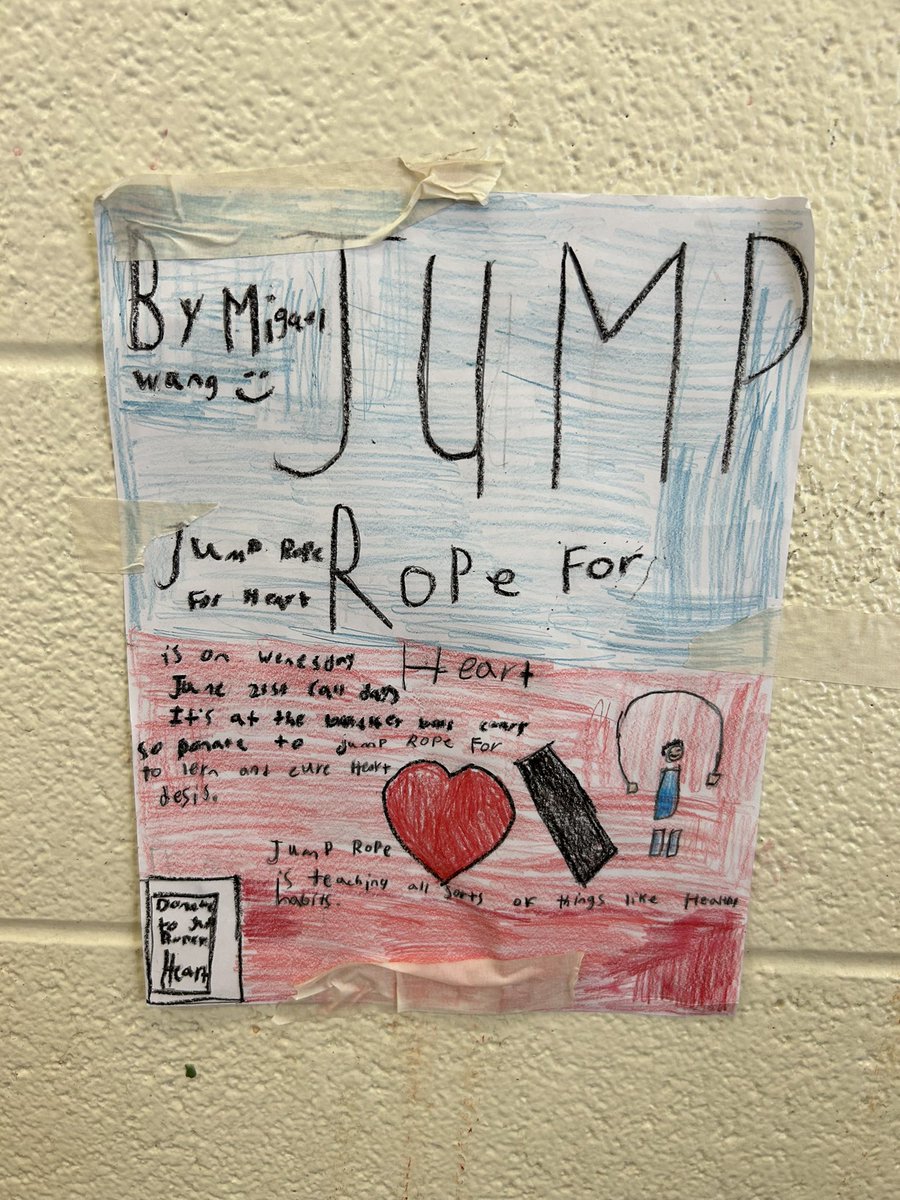 By Miguel
wang
JUMP
Jump Rope
For Heart
Rope For
Heart
is on wenesday
June 21st (all day)
It's at the
so Donate to jump Rope For
to lern and cure Heart
desis.
Jump Rope
is teaching all sorts of things like Healthy
habits.
Donate
to
Heart